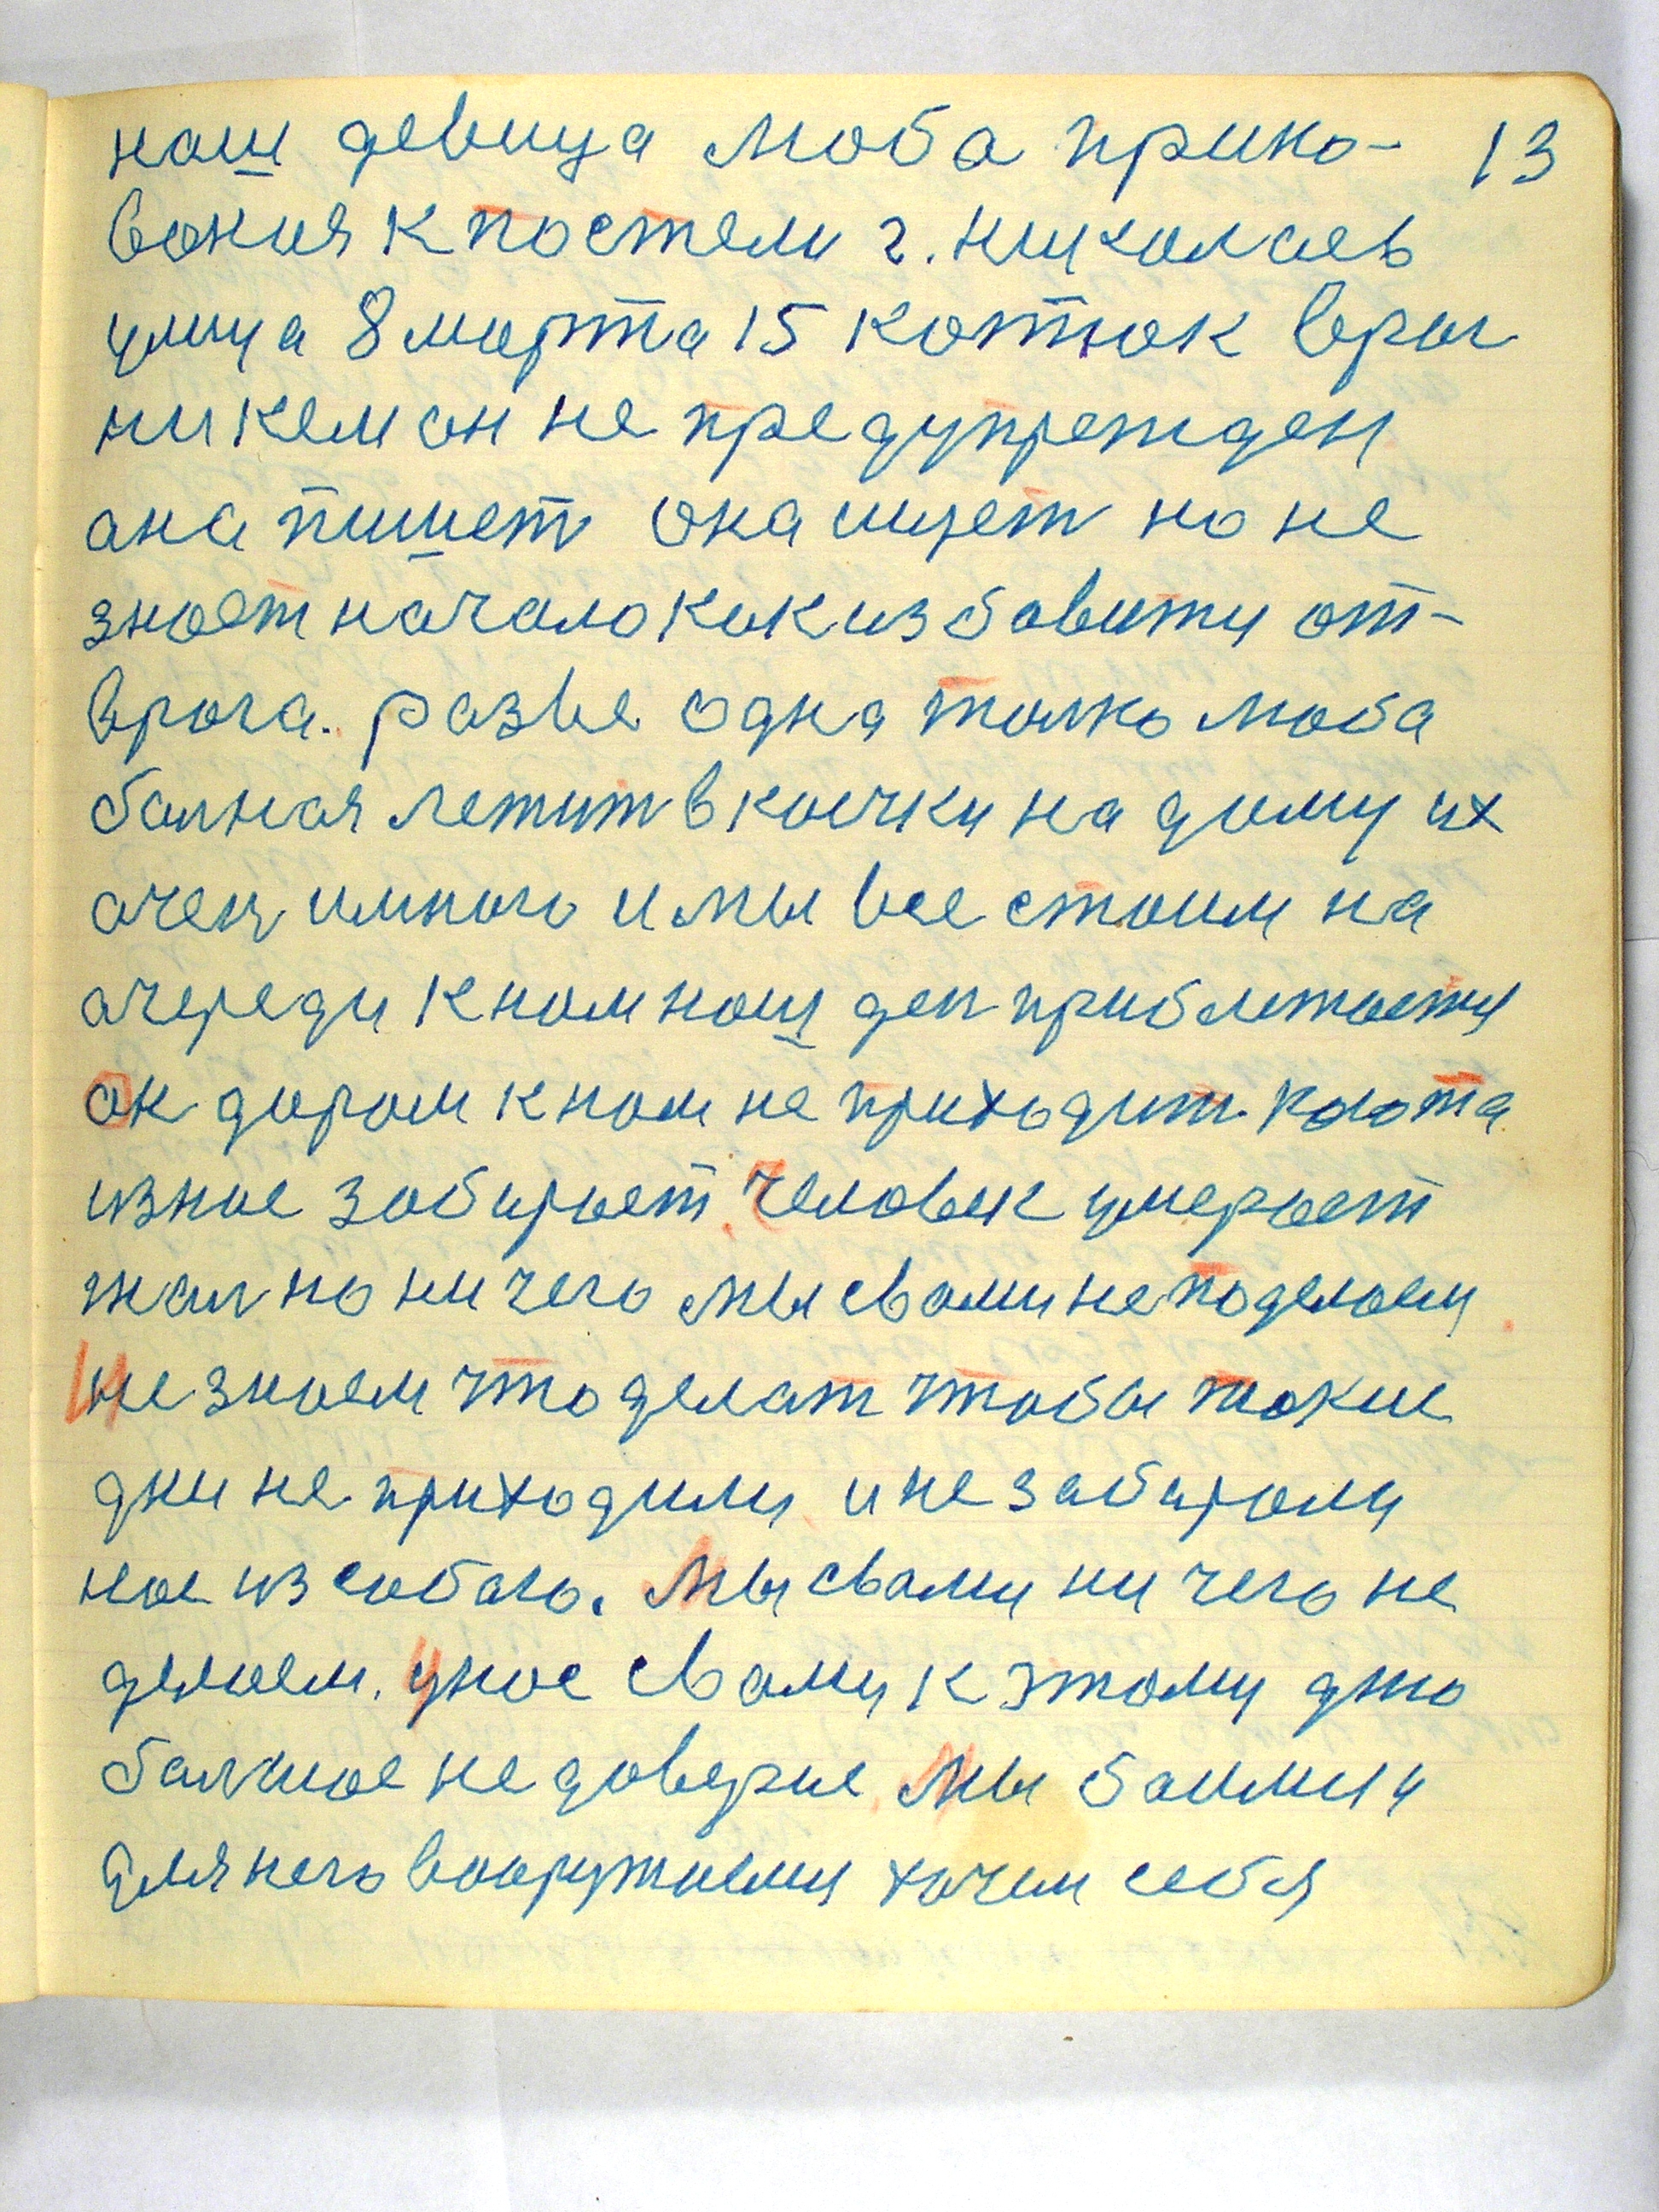 наш девица Люба прико- 13
воная к постели г. Николаев
улица 8 марта 15 Котюк враг
ни кем он не предупрежден
ана пишет она ищет но не
знает начало как избавити от-
врага. разве одна толко Люба
балная лежит в коечки на дому их
очен имного и мы все стоим на
очереди к нам наш ден приближается
он даром к нам не приходит. кого та
изнас забирает. Человек умерает
жал но ни чего мы свами не поделаем.
И не знаем что делат чтобы такие
дни не приходили и не забирали
нас из собою. Мы свами ни чего не
делаем. у нас свами к этому дню
балшое не доверие. Мы баимся
для него вооружаемся хочем себя